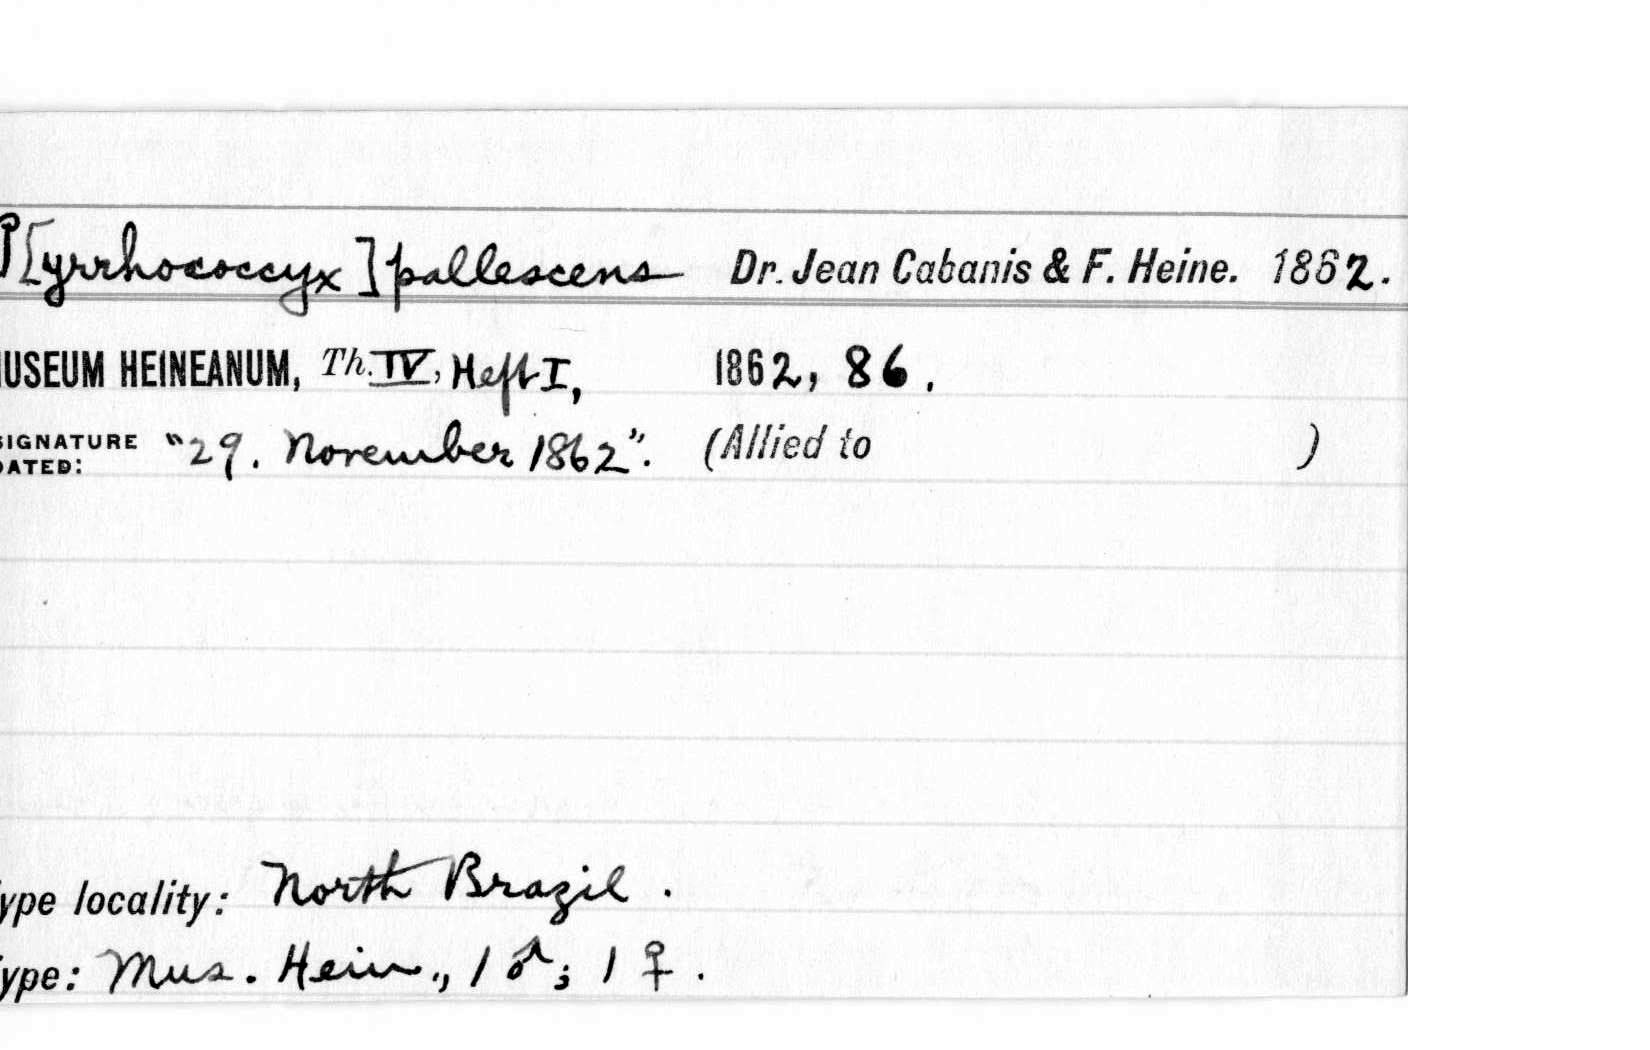 P[yrrhococcyx] pallescens Dr. Jean Cabanis & F. Heine. 1862.
MUSEUM HEINEANUM, Th. IV, Heft I, 1862, 86.
SIGNATURE DATED: "29. November 1862". (Allied to )
Type locality: North Brazil.
Type: Mus. Hein., 1 ♂; 1 ♀.